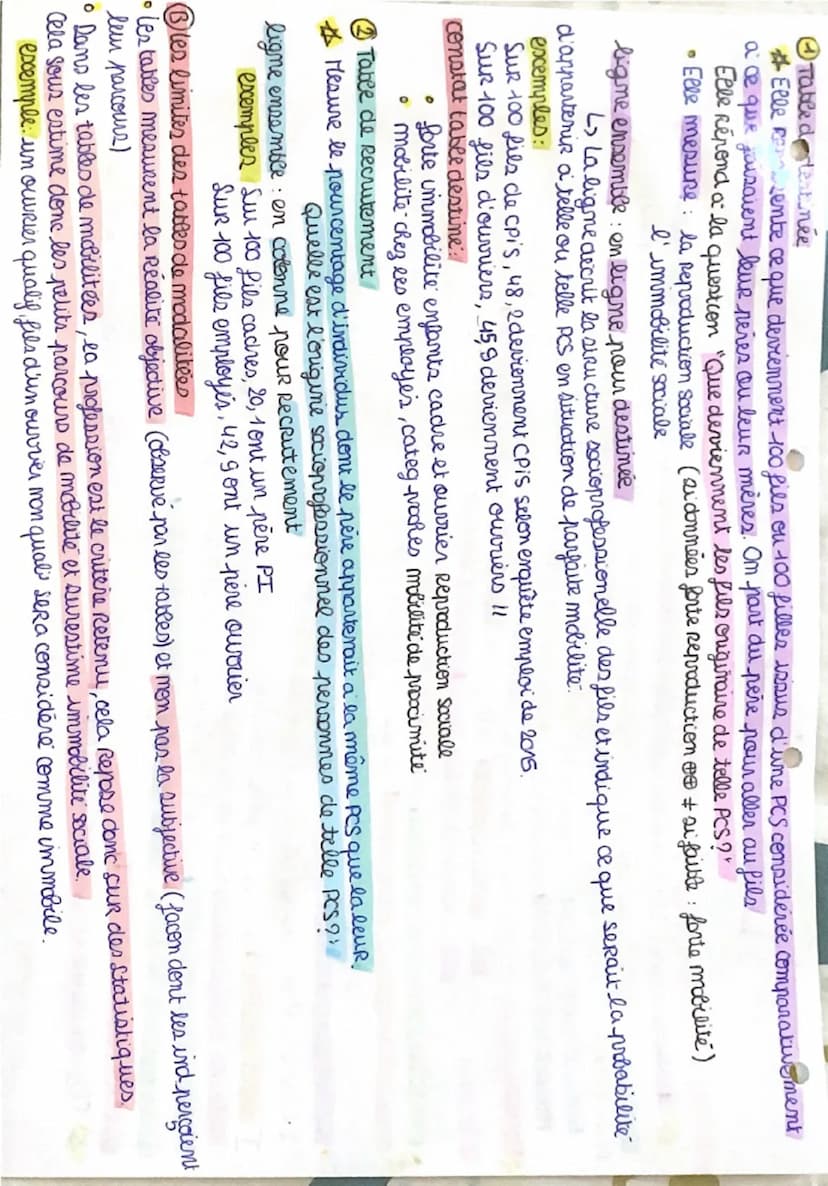 ① Table destinée
* Elle représente ce que deviennent 100 fils ou 100 filles issus d'une PCS considérée comparativement
à ce que faisaient leur pères ou leur mères. On part du père pour aller au fils
Elle répond à la question "Que deviennent les fils originaire de telle PCS?"
• Elle mesure : la reproduction sociale (si données forte reproduction ⊕⊕ ≠ si faible : forte mobilité)
l'immobilité sociale
ligne ensemble : en ligne pour destinée
↳ La ligne décrit la structure socioprofessionelle des fils et indique ce que serait la probabilité
d'appartenir à telle ou telle PCS en situation de parfaite mobilité.
exemples :
Sur 100 fils de cpis, 48,2 deviennent CPiS selon enquête emploi de 2015.
Sur 100 fils d'ouvriers, 45,9 deviennent ouvriers "
constat table destiné :
• forte immobilité enfants cadre et ouvrier reproduction sociale
• mobilité chez les employés, categ. proches mobilité de proximité
② Table de recrutement
* Mesure le pourcentage d'individus dont le père appartenait à la même PCS que la leur.
Quelle est l'origine socioprofessionnel des personnes de telle PCS?"
ligne ensemble : en colonne pour recrutement
exemples Sur 100 fils cadres, 20,1 ont un père PI
Sur 100 fils employés, 42,9 ont un père ouvrier
Ⓑ Les limites des tables de modalitées
• Les tables mesurent la réalité objective (observé par les tables) et non pas la subjective (façon dont les ind perçoient
leur parcours)
• Dans les tables de mobilitées, la profession est le critère retenu, cela repose donc sur des statistiques.
Cela sous estime donc les petits parcours de mobilité et surestime immobilité sociale.
exemple : un ouvrier qualif, fils d'un ouvrier non qualif sera considéré comme immobile.